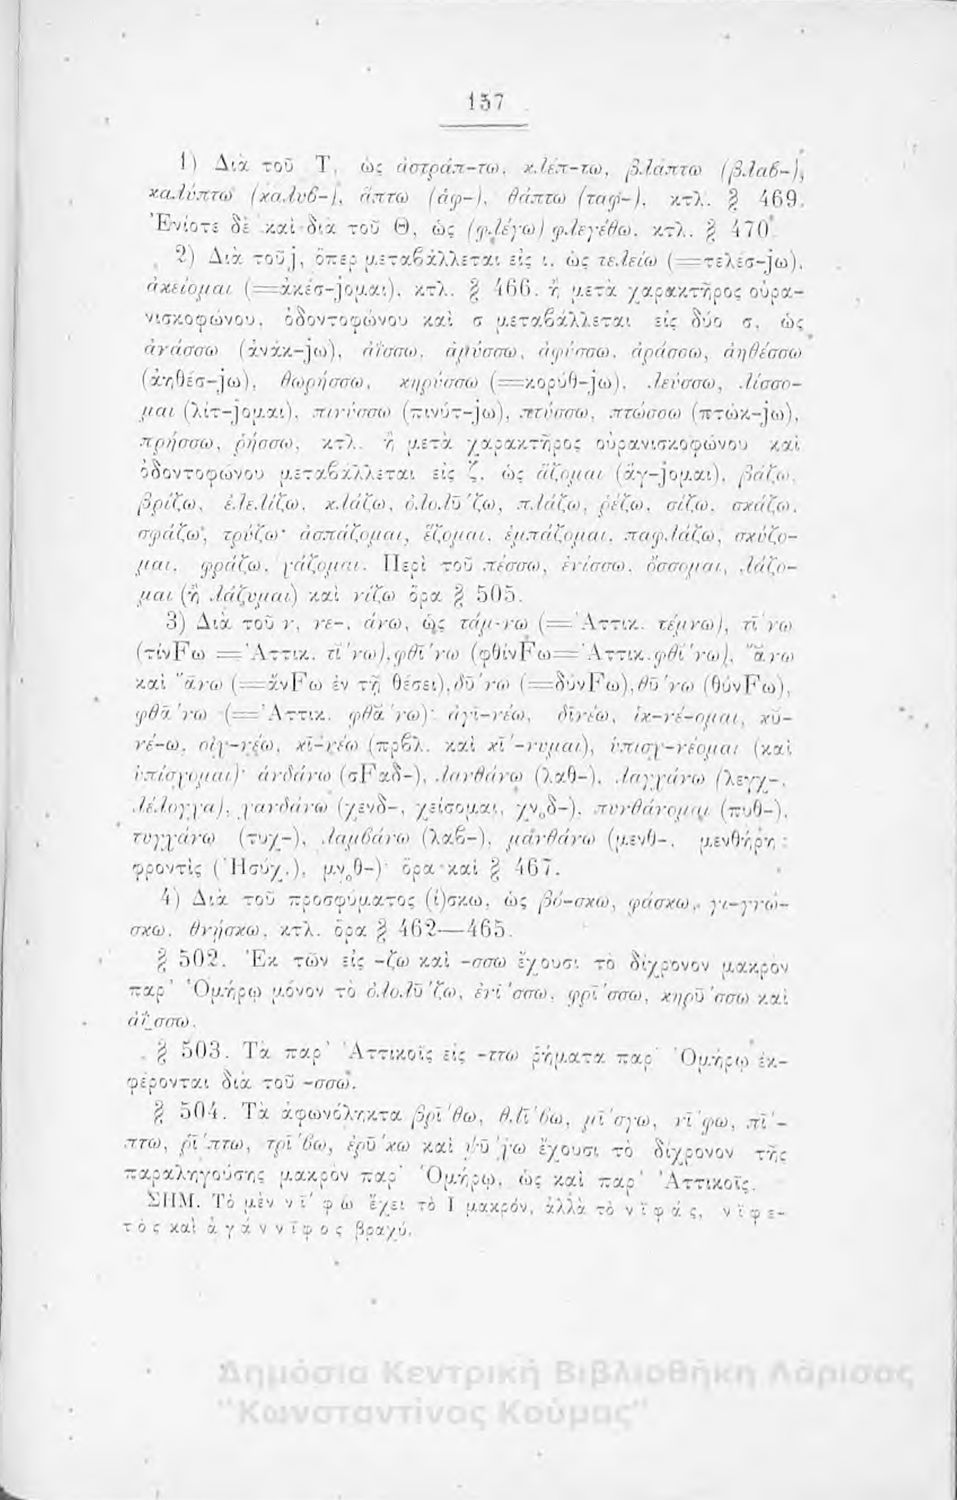 157
1) Διὰ τοῦ Τ, ὡς ἀστράπ-τω, κλέπ-τω, βλάπτω (βλαβ-),
καλύπτω (καλυβ-), ἅπτω (ἁφ-), θάπτω (ταφ-), κτλ. § 469.
Ἐνίοτε δὲ καὶ διὰ τοῦ Θ, ὡς (φλέγω) φλεγέθω, κτλ. § 470.
2) Διὰ τοῦ j, ὅπερ μεταβάλλεται εἰς ι, ὡς τελείω (=τελέσ-jω),
ἀκείομαι (=ἀκέσ-jομαι), κτλ. § 466. ἢ μετὰ χαρακτῆρος οὐρα-
νισκοφώνου, ὀδοντοφώνου καὶ σ μεταβάλλεται εἰς δύο σ, ὡς
ἀνάσσω (ἀνάκ-jω), ἀΐσσω, ἀμύσσω, ἀφύσσω, ἀράσσω, ἀηθέσσω
(ἀηθέσ-jω), θωρήσσω, κηρύσσω (=κορύθ-jω), λεύσσω, λίσσο-
μαι (λίτ-jομαι), πινύσσω (πινύτ-jω), πτύσσω, πτώσσω (πτώκ-jω),
πρήσσω, ῥήσσω, κτλ. ἢ μετὰ χαρακτῆρος οὐρανισκοφώνου καὶ
ὀδοντοφώνου μεταβάλλεται εἰς ζ, ὡς ἅζομαι (ἅγ-jομαι), βάζω,
βρίζω, ἐλελίζω, κλάζω, ὀλολῡ́ζω, πλάζω, ῥέζω, σίζω, σχάζω,
σφάζω, τρύζω· ἀσπάζομαι, ἕζομαι, ἐμπάζομαι, παφλάζω, σκύζο-
μαι, φράζω, χάζομαι. Περὶ τοῦ πέσσω, ἐνίσσω, ὄσσομαι, λάζο-
μαι (ἢ λάζυμαι) καὶ νίζω ὅρα § 505.
3) Διὰ τοῦ ν, νε-, άνω, ὡς τάμ-νω (=Ἀττικ. τέμνω), τῑ́νω
(τίνFω =Ἀττικ. τῐ́νω), φθῑ́νω (φθίνFω=Ἀττικ. φθῐ́νω), ἄνω
καὶ ἄνω (=ἄνFω ἐν τῇ θέσει), δῡ́νω (=δύνFω), θῡ́νω (θύνFω),
φθᾱ́νω (=Ἀττικ. φθᾰ́νω)· ἀγῑ-νέω, δῑνέω, ἱκ-νέ-ομαι, κυ-
νέ-ω, οἰχ-νέω, κῑ-νέω (πρβλ. καὶ κῑ́-νυμαι), ὑπισχ-νέομαι (καὶ
ὑπίσχομαι)· ἁνδάνω (σFαδ-), λανθάνω (λαθ-), λαγχάνω (λεγχ-,
λέλογχα), χανδάνω (χενδ-, χείσομαι, χνₒδ-), πυνθάνομαι (πυθ-),
τυγχάνω (τυχ-), λαμβάνω (λαβ-), μανθάνω (μενθ-, μενθήρη :
φροντὶς (Ἡσύχ.), μνₒθ-)· ὅρα καὶ § 467.
4) Διὰ τοῦ προσφύματος (ί)σκω, ὡς βό-σκω, φάσκω, γι-γνώ-
σκω, θνήσκω, κτλ. ὅρα § 462—465.
§ 502. Ἐκ τῶν εἰς -ζω καὶ -σσω ἔχουσι τὸ δίχρονον μακρὸν
παρ' Ὁμήρῳ μόνον τὸ ὀλολῡ́ζω, ἐνῑ́σσω, φρῑ́σσω, κηρῡ́σσω καὶ
ἀΐ̱σσω.
§ 503. Τὰ παρ' Ἀττικοῖς εἰς -ττω ῥήματα παρ' Ὁμήρῳ ἐκ-
φέρονται διὰ τοῦ -σσω.
§ 504. Τὰ ἀφωνόληκτα βρῑ́θω, θλῑ́βω, μῑ́σγω, νῑ́φω, πῑ́-
πτω, ῥῑ́πτω, τρῑ́βω, ἐρῡ́κω καὶ ψῡ́χω ἔχουσι τὸ δίχρονον τῆς
παραληγούσης μακρὸν παρ' Ὁμήρῳ, ὡς καὶ παρ' Ἀττικοῖς.
ΣΗΜ. Τὸ μὲν νῑ́φω ἔχει τὸ Ι μακρόν, ἀλλὰ τὸ νῐφάς, νῐφε-
τὸς καὶ ἀγάννῐφος βραχύ.
Δημόσια Κεντρική Βιβλιοθήκη Λάρισας
"Κωνσταντίνος Κούμας"